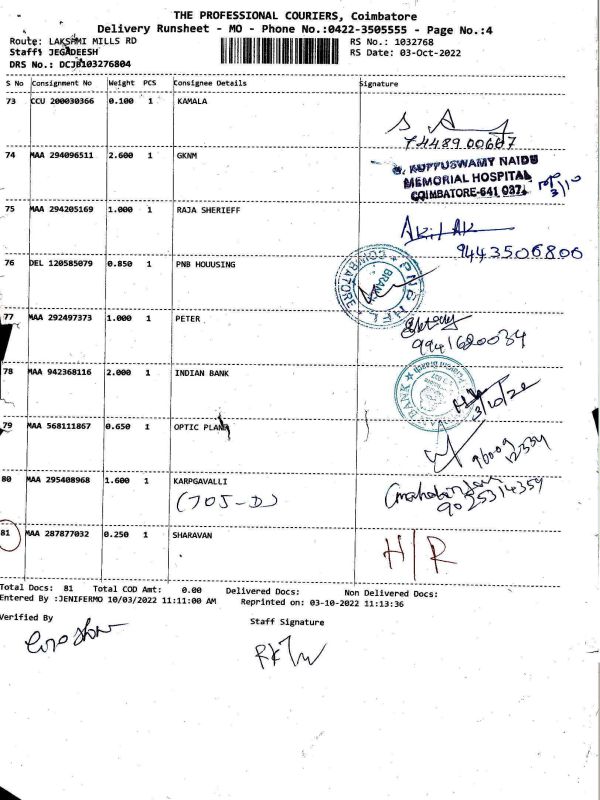 THE PROFESSIONAL COURIERS, Coimbatore
Delivery Runsheet - MO - Phone No.:0422-3505555 - Page No.:4
Route: LAKSHMI MILLS RD RS No.: 1032768
Staff: JEGADEESH RS Date: 03-Oct-2022
DRS No.: DCJB103276804
S No Consignment No Weight PCS Consignee Details Signature
73 CCU 200030366 0.100 1 KAMALA
7448900667
74 MAA 294096511 2.600 1 GKNM
G. KUPPUSWAMY NAIDU
MEMORIAL HOSPITAL
COIMBATORE-641 037.
3/10
75 MAA 294205169 1.000 1 RAJA SHERIEFF
9443506806
76 DEL 120585079 0.850 1 PNB HOUUSING
PNB HFL
BRANCH
COIMBATORE
77 MAA 292497373 1.000 1 PETER
9941620034
78 MAA 942368116 2.000 1 INDIAN BANK
3/10/22
79 MAA 568111867 0.650 1 OPTIC PLANE
80 MAA 295408968 1.600 1 KARPGAVALLI
(705-D)
9025314359
81 MAA 287877032 0.250 1 SHARAVAN
H/R
Total Docs: 81 Total COD Amt: 0.00 Delivered Docs: Non Delivered Docs:
Entered By :JENIFERMO 10/03/2022 11:11:00 AM Reprinted on: 03-10-2022 11:13:36
Verified By Staff Signature